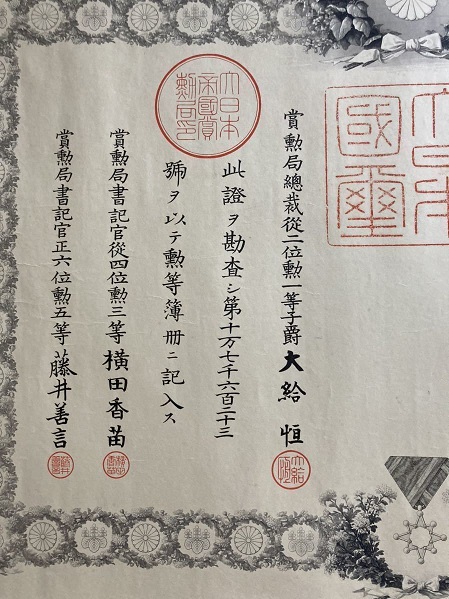 大日本
國璽
賞勲局總裁從二位勲一等子爵大給恒
大給
恒
大日本
帝國賞
勳局印
此證ヲ勘査シ第十万七千六百二十三
號ヲ以テ勲等簿冊ニ記入ス
賞勲局書記官從四位勲三等横田香苗
賞勲局書記官正六位勲五等藤井善言